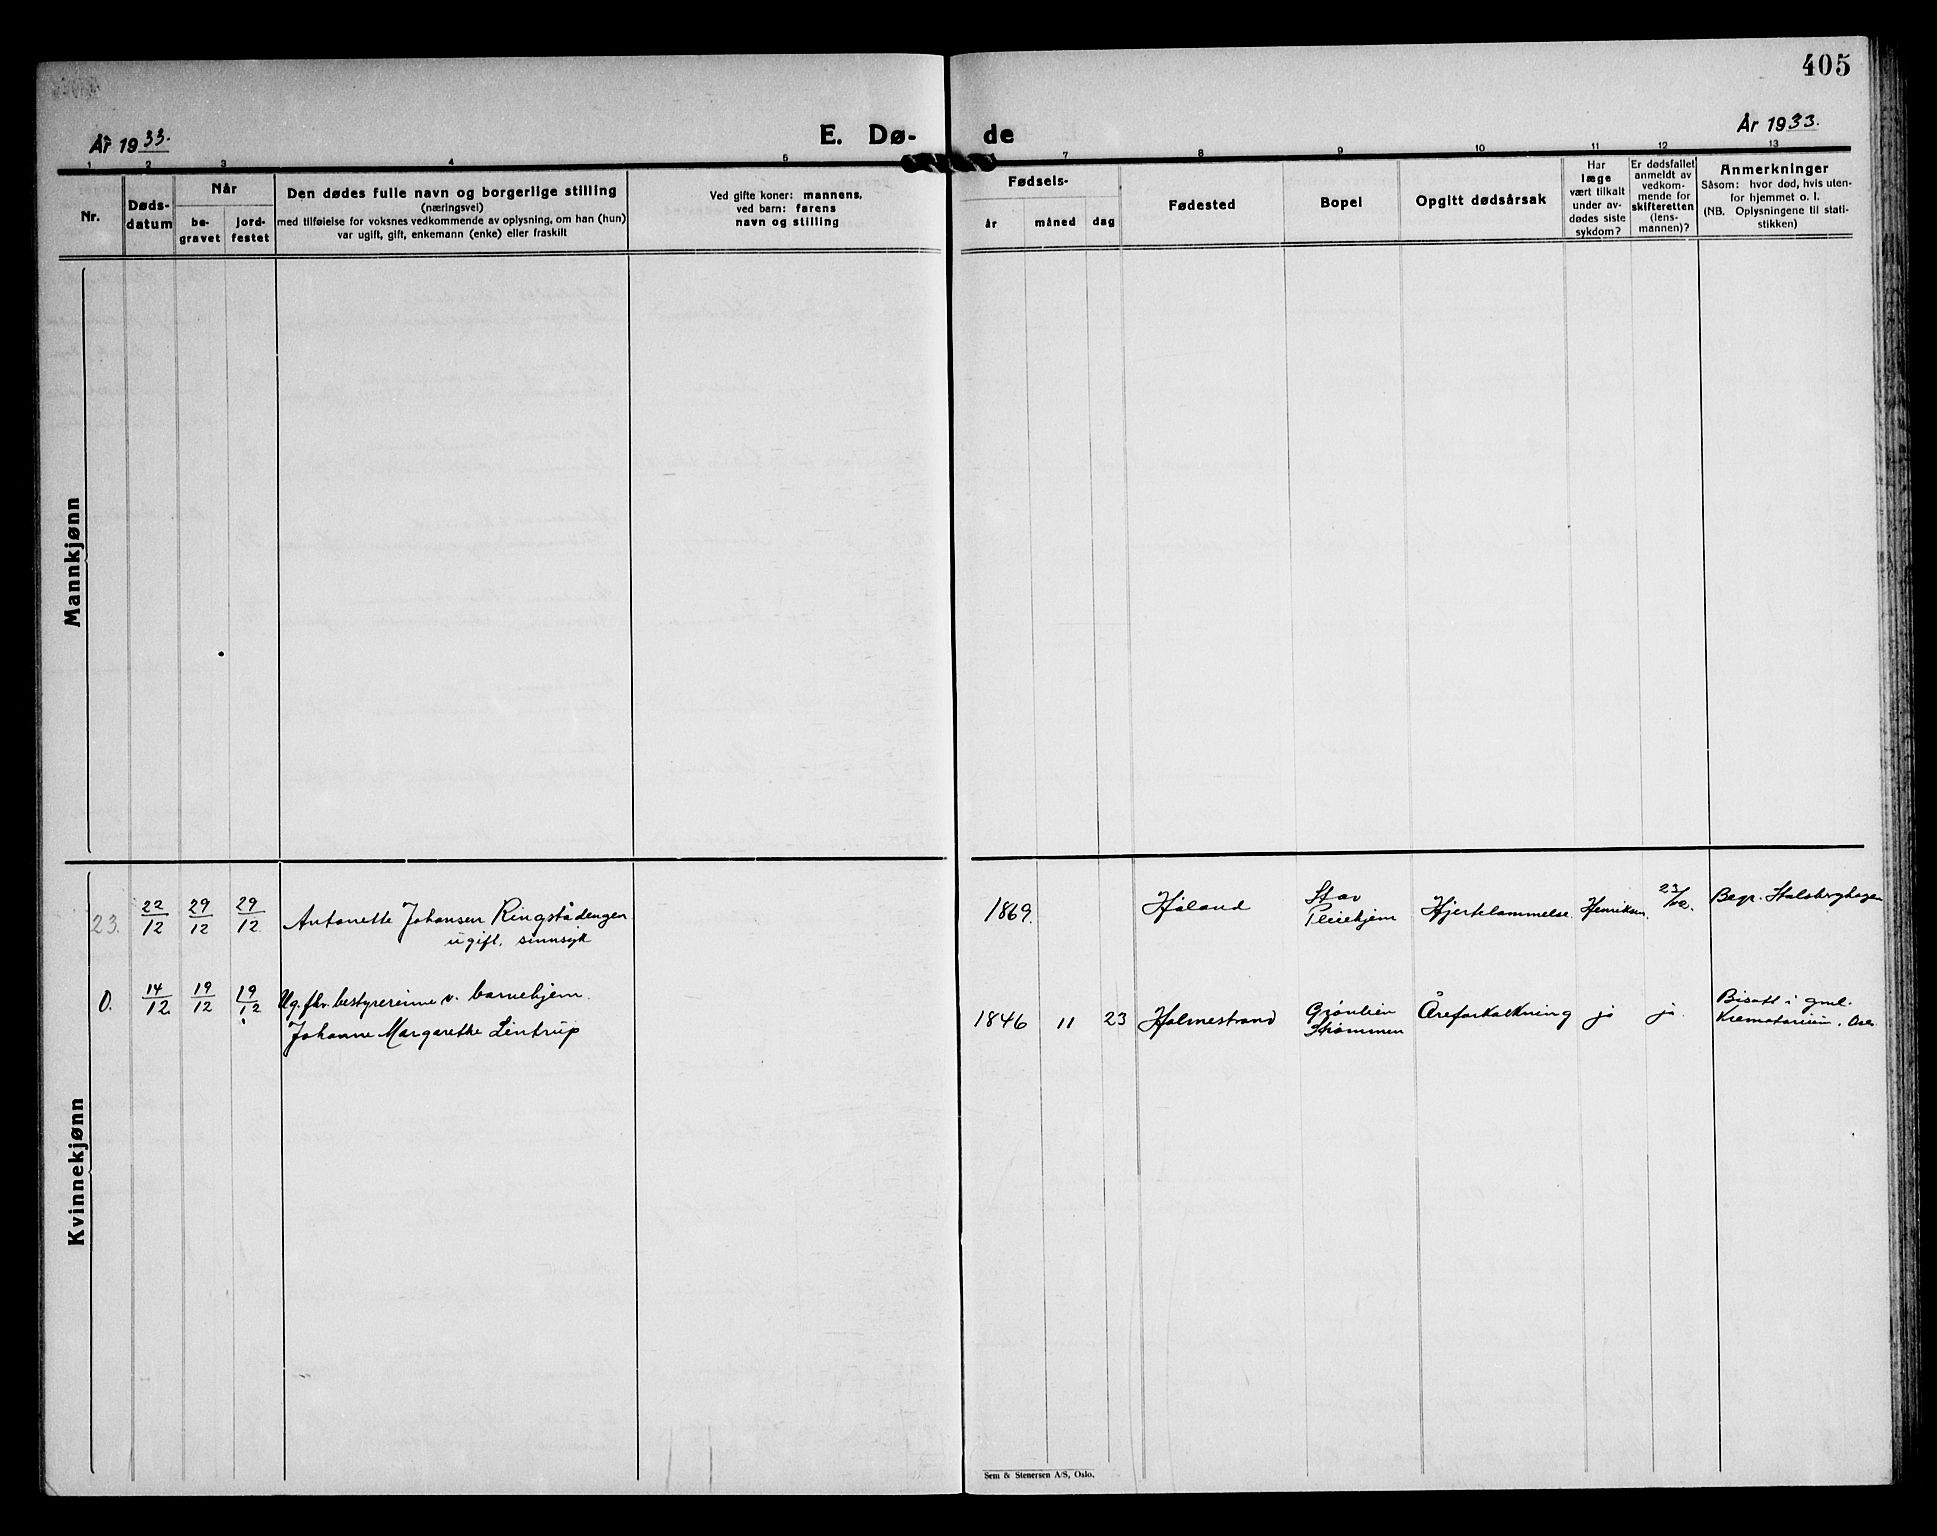 405
År 1933.
E. Dø-
de
År 1933.
1 2 3 4 5 7 8 9 10 11 12 13
Nr.
Døds-
datum
Når
be-
gravet
jord-
festet
Den dødes fulle navn og borgerlige stilling
(næringsvei)
med tilføielse for voksnes vedkommende av oplysning, om han (hun)
var ugift, gift, enkemann (enke) eller fraskilt
Ved gifte koner: mannens,
ved barn: farens
navn og stilling
Fødsels-
år måned dag
Fødested
Bopel
Opgitt dødsårsak
Har
læge
vært tilkalt
under av-
dødes siste
sykdom?
Er dødsfallet
anmeldt av
vedkom-
mende for
skifteretten
(lens-
mannen)?
Anmerkninger
Såsom: hvor død, hvis uten-
for hjemmet o. l.
(NB. Oplysningene til stati-
stikken)
Mannkjønn
Kvinnekjønn
23. 22/12 29/12 29/12 Antonette Johansen Ringstådengen
ugift, sinnsyk
1869. Høland
Stav
Pleiehjem
Hjertelammelse. Henriksen. 23/12. Begr. Stalsberghagen
0. 14/12 19/12 19/12 Ug. fhv. bestyrerinne v. barnehjem.
Johanne Margarethe Lintrup
1846 11 23 Holmestrand
Grønlien
Strømmen
Åreforkalkning ja ja.
Bisatt i gml.
Krematorium,
Sem & Stenersen A/S, Oslo.